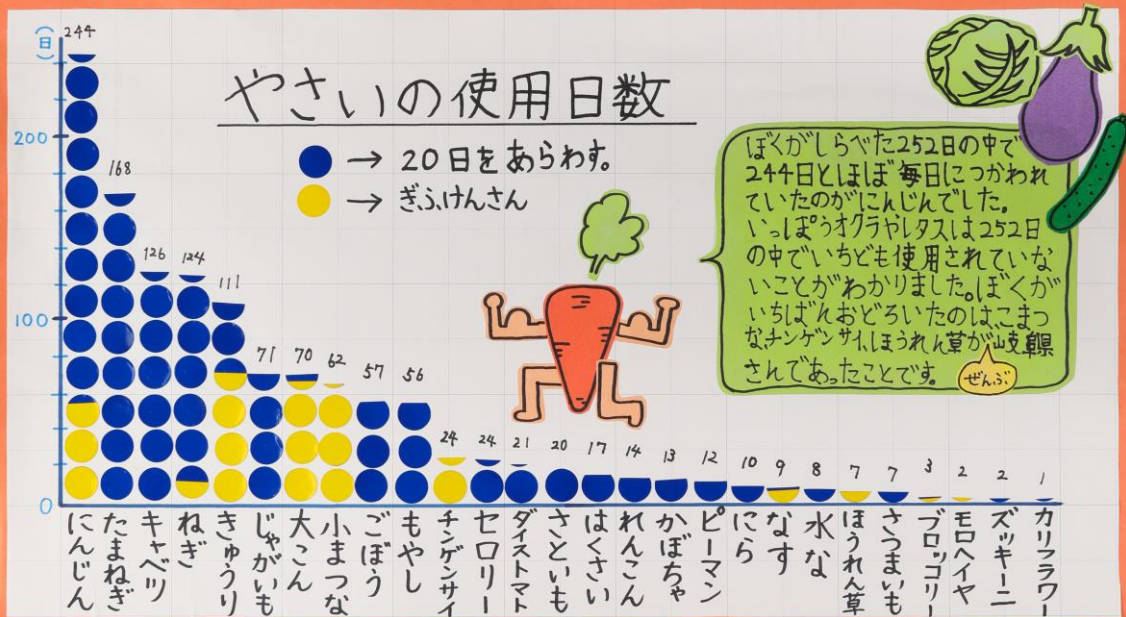 やさいの使用日数
● → 20日をあらわす。
● → ぎふけんさん
ぼくがしらべた252日の中で
244日とほぼ毎日につかわれ
ていたのがにんじんでした。
いっぽうオクラやレタスは252日
の中でいちども使用されていな
いことがわかりました。ぼくが
いちばんおどろいたのは、こまつ
な、チンゲンサイ、ほうれん草が岐阜県
さんであったことです。
ぜんぶ
(日)
200
100
0
244
168
126
124
111
71
70
62
57
56
24
24
21
20
17
14
13
12
10
9
8
7
7
3
2
2
1
にんじん
たまねぎ
キャベツ
ねぎ
きゅうり
じゃがいも
大こん
小まつな
ごぼう
もやし
チンゲンサイ
セロリー
ダイストマト
さといも
はくさい
れんこん
かぼちゃ
ピーマン
にら
なす
水な
ほうれん草
さつまいも
ブロッコリー
モロヘイヤ
ズッキーニ
カリフラワー